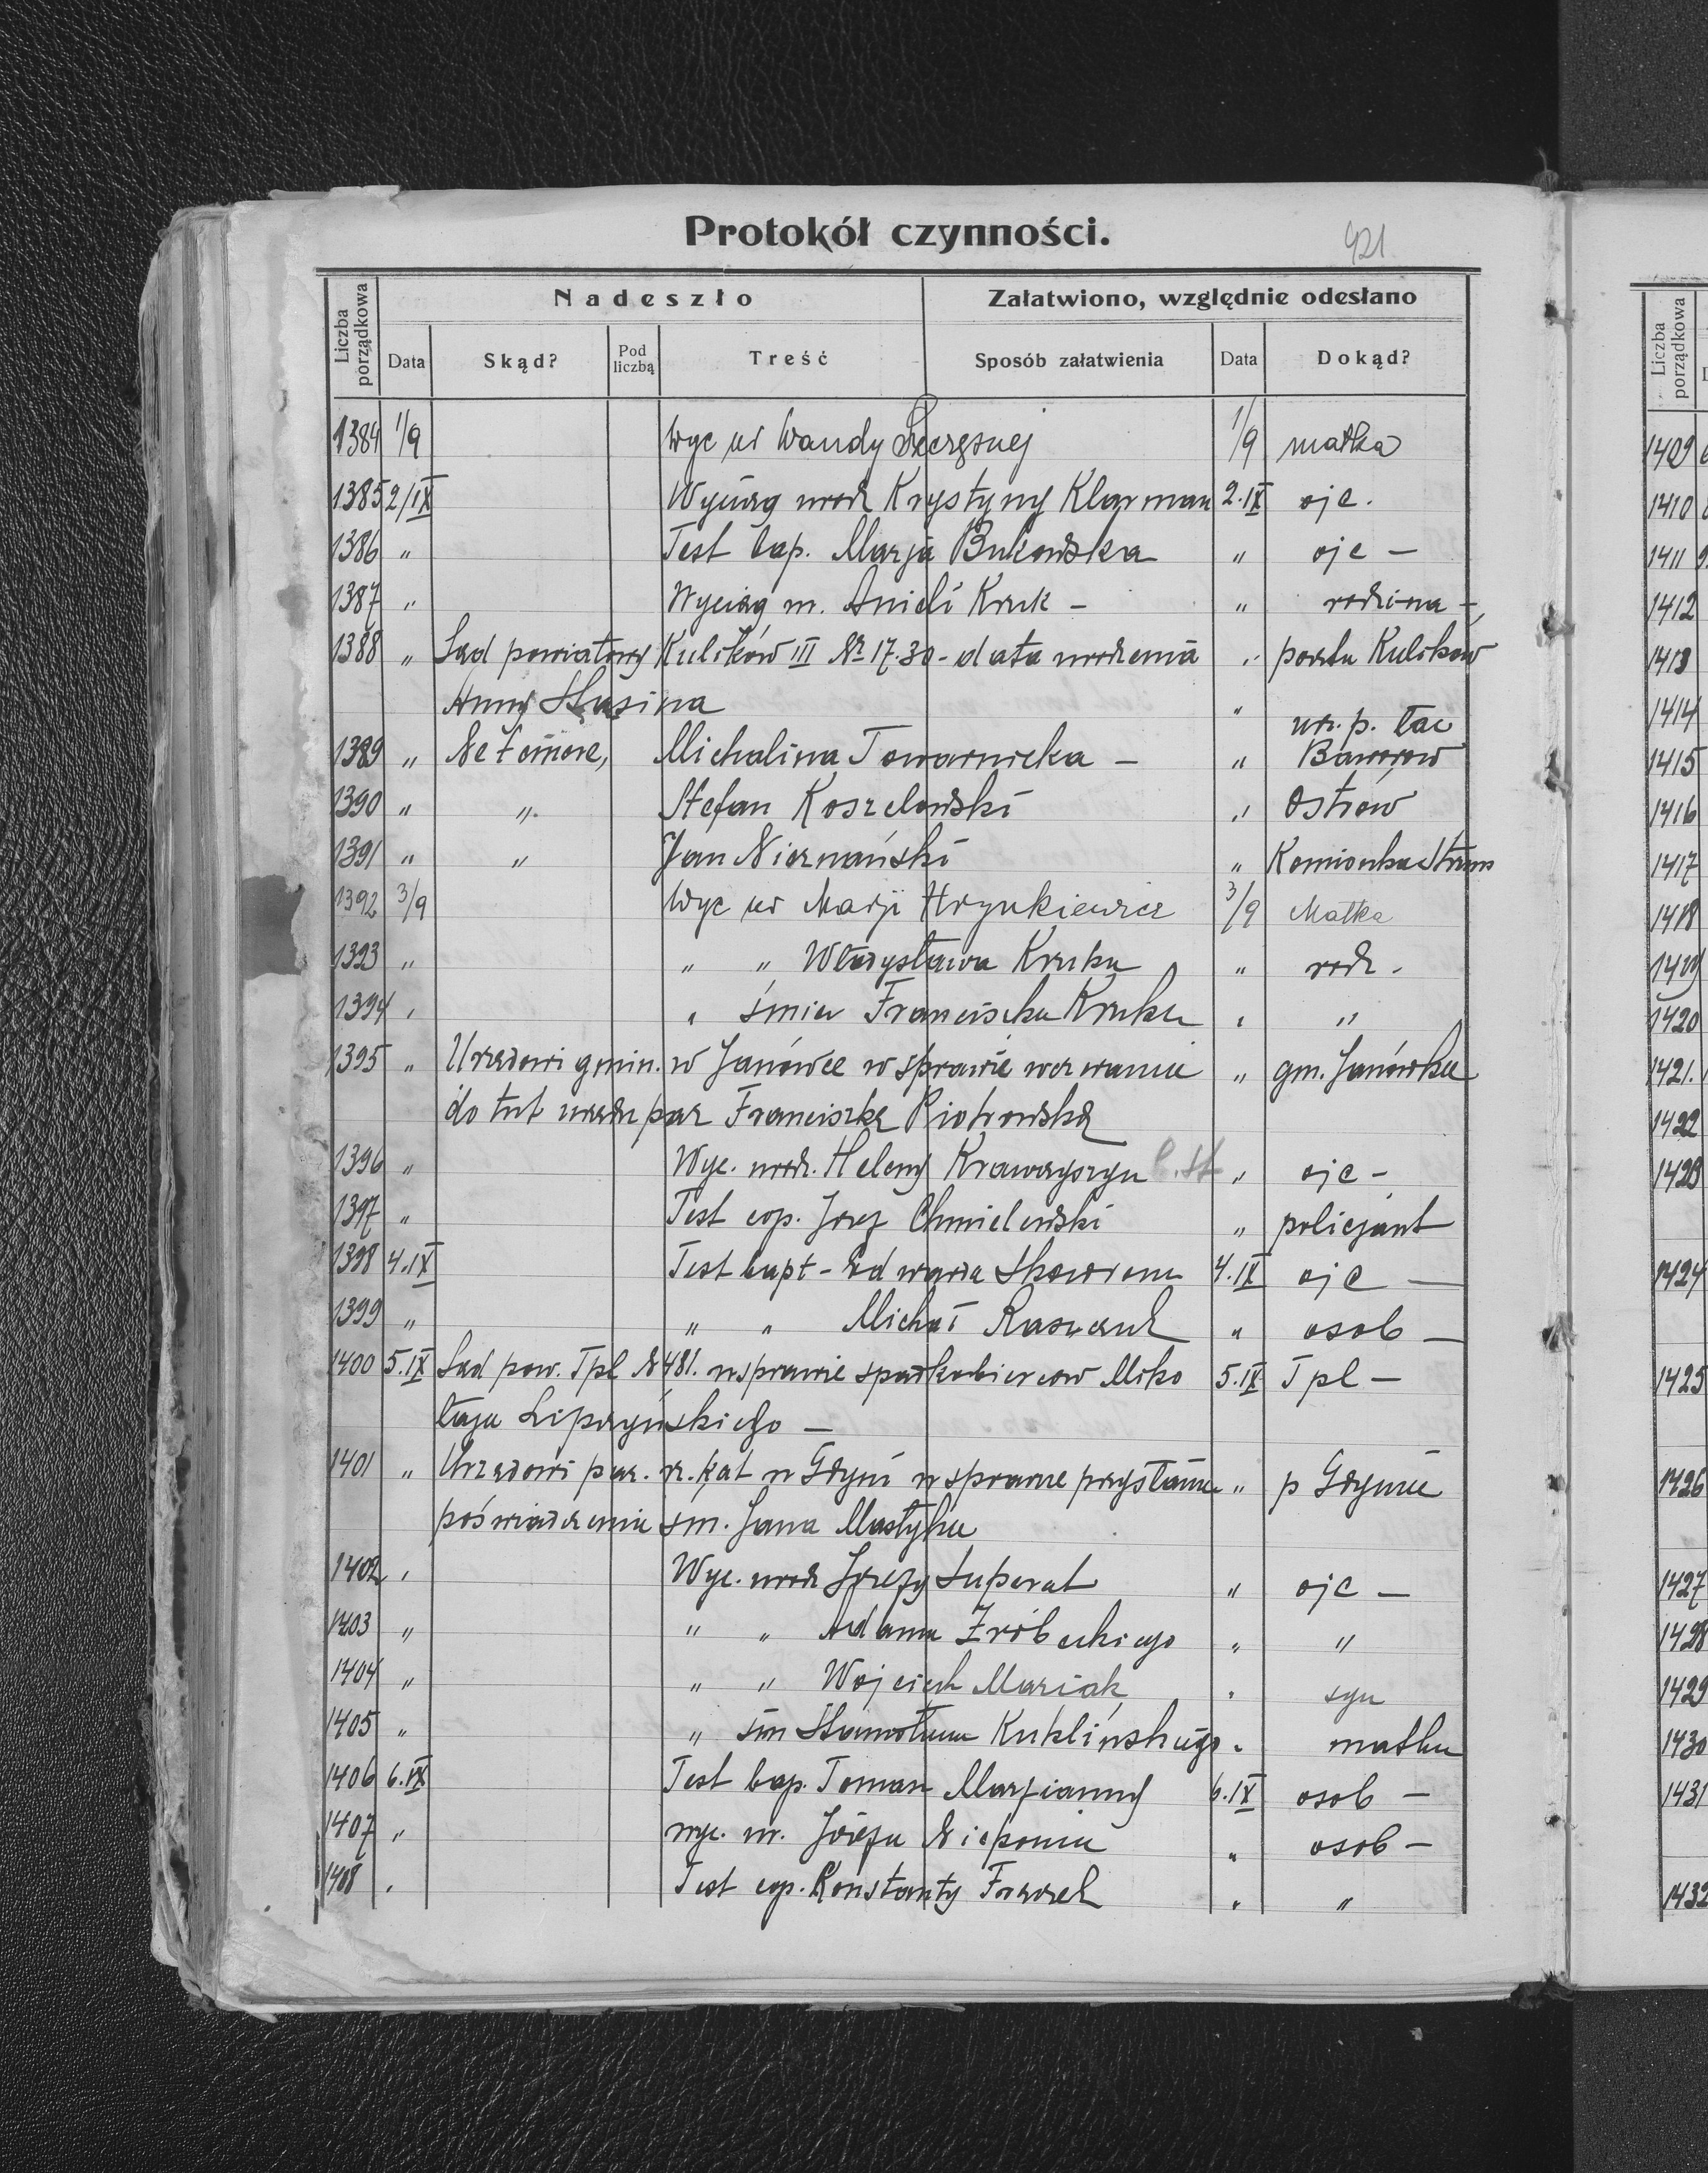 Protokół czynności.
421
Liczba porządkowa
Nadeszło
Załatwiono, względnie odesłano
Data Skąd? Pod liczbą Treść Sposób załatwienia Data Dokąd?
1384 1/9 Wyc ur Wandy Szczęsnej 1/9 matka
1385 2/IX Wyciąg urodz Krystyny Klarman 2.IX ojc.
1386 " Test bap. Marja Bukowska " ojc —
1387 " Wyciąg m. Anieli Kruk - " rodzina -
1388 " Sąd powiatowy Kulików III Nr 17.30 - data urodzenia " poczta Kulików
Anny Husina "
1389 " Ne temere, Michalina Towarnicka — " urz. p. łac Baworów
1390 " " Stefan Koszelowski " Ostrów
1391 " " Jan Niemański " Kamionka Strum
1392 3/9 Wyc ur Marji Hrynkiewicz 3/9 Matka
1393 " " " Władysława Kruka " rodz.
1394 " " śmier Franciszka Kruka " "
1395 " Urzędowi gmin. w Janówce w sprawie wezwania " gm. Janówka
do tut urzędu par Franciszkę Piotrowską
1396 " Wyc. urodz. Heleny Krawczyszyn " ojc -
1397 " Test cop. Józef Chmielewski " policjant
1398 4.IX Test bapt - Edwarda 4.IX ojc —
1399 " " " Michał " osob —
1400 5.IX Sąd pow. Tpl N 481. w sprawie spadkobierców Miko 5.IX Tpl —
łaja Lipczyńskiego —
1401 " Urzędowi par. rz. kat w Gdyni w sprawie przysłania " p Gdynia
poświadczenia śm. Jana Mastyka
1402 " Wyc. urodz Józefy Superat " ojc —
1403 " " " Adama Zróbeckiego " "
1404 " " " Wojciech Maziak " syn
1405 " " śm Kuklińskiego " matka
1406 6.IX Test bap. Tomasz Marzianny 6.IX osob —
1407 " wyc. ur. Józefa Nieponia " osob —
1408 " Test cop. Konstanty " "
Liczba porządkowa
1409
1410
1411
1412
1413
1414
1415
1416
1417
1418
1419
1420
1421.
1422
1423
1424
1425
1426
1427
1428
1429
1430
1431
1432